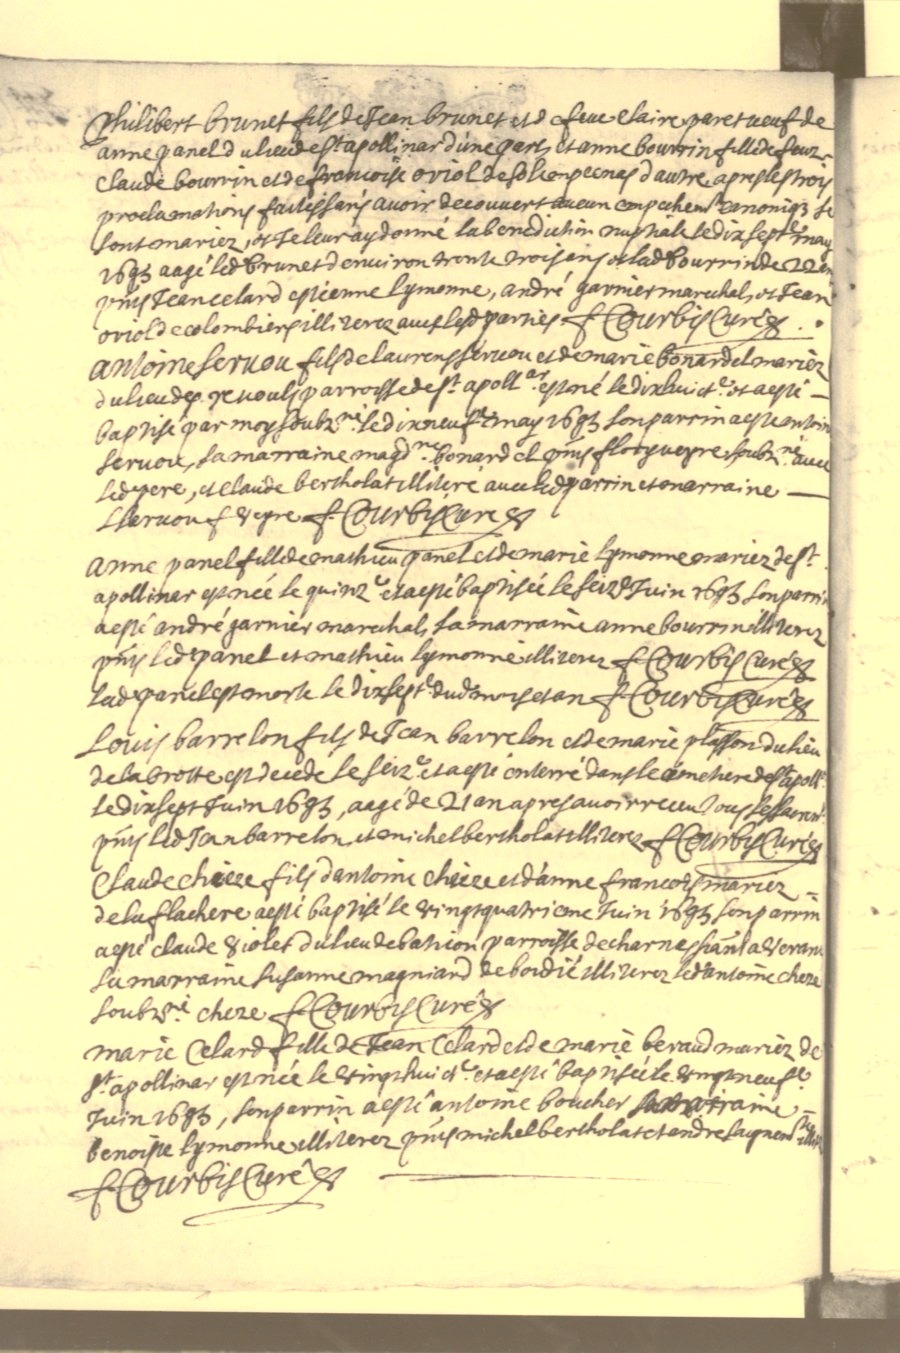 Philibert brunet fils de Jean brunet et de feue claire paret veuf de
anne panel du lieu de st apollinar d'une part, et anne bourrin fille de feu
claude bourrin et de francoise oriol d'autre apres les troys
proclamations faites sans avoir decouvert aucun empechemt canoniq3 se
sont mariez, et Je leur ay donné la benediction nuptiale le dix septe may
1693 aagé led brunet d'environ trente trois ans et lad bourrin de 22 an
pnts Jean celard estienne lymonne, andré garnier marechal, et Jean
oriol de colombier illiterez avec lesd parties f Courbis Curé
antoine servou fils de laurens servou et de marie bonardel mariez
du lieu de parroisse de st apollar est né le dix huicte et a esté
baptisé par moy soubzné le dix neufe may 1693 son parrin a esté antoin
servou, sa marraine magdne bonardel pnts soubzné avec
led pere, et claude bertholat illiteré avec led parrin et marraine
L servou f vepre f Courbis Curé
anne panel fille de mathieu panel et de marie lymonne mariez de st
apollinar est née le quinze et a esté baptisée le seize Juin 1693 son parrin
a esté andré garnier marechal, sa marraine anne bourrin illiterez
pnts led panel et mathieu lymonne illiterez f Courbis Curé
lad panel est morte le dix septe dud mois et an f Courbis Curé
Louis barrelon fils de Jean barrelon et de marie plasson du lieu
de la grotte est decedé le seize et a esté enterré dans le cimetiere de st apoll
le dix sept Juin 1693, aagé de 21 an apres avoir receu tous les sacremts
pnts led Jean barrelon, et michel bertholat illiterez f Courbis Curé
Claude cheze fils d'antoine cheze et d'anne francois mariez
de la flachere a esté baptisé le vingt quatrieme Juin 1693 son parrin
a esté claude violet du lieu de parroisse de charnas
sa marraine susanne magniard de illiterez led antoine cheze
soubzné cheze f Courbis Curé
marie Celard fille de Jean Celard et de marie beraud mariez de
st apollinar est née le vingt huicte et a esté baptisée le vingt neufe
Juin 1693, son parrin a esté antoine boucher sa marraine
benoiste lymonne illiterez pnts michel bertholat et andre
f Courbis Curé